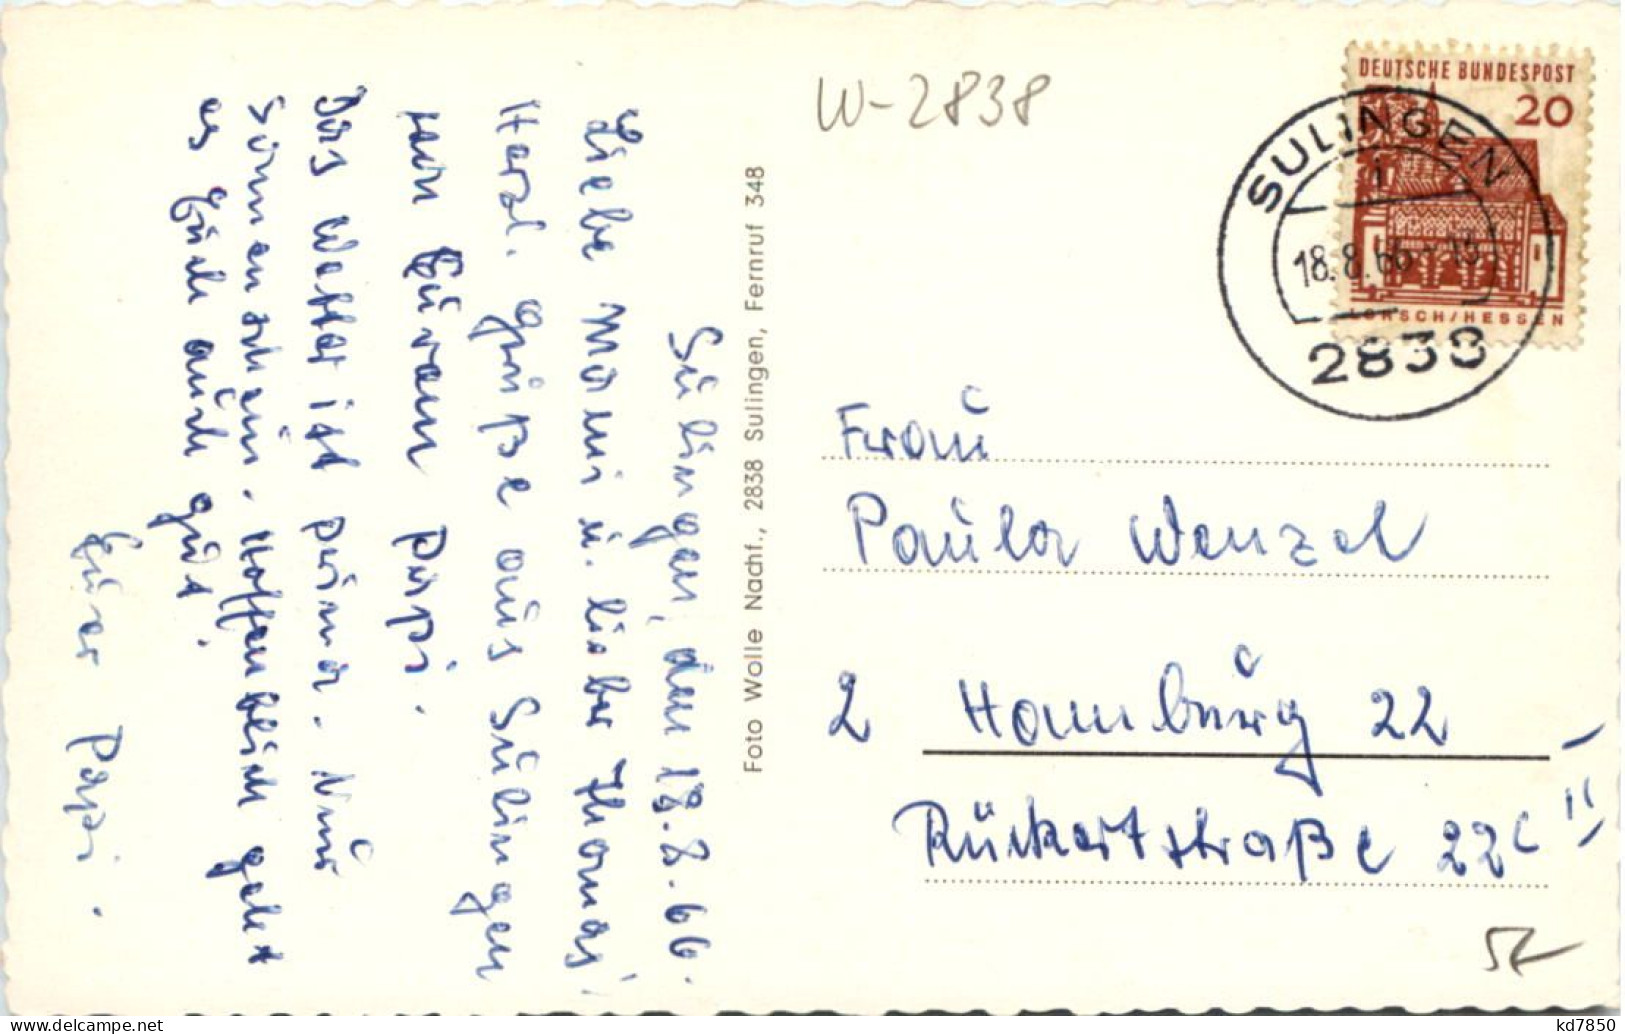 Sulingen, den 18.8.66.
Liebe Mami u. lieber Thomas!
Herzl. Grüße aus Sulingen
von Eurem Papi.
Das Wetter ist prima. Nur
Sonnenschein. Hoffentlich geht
es Euch auch gut.
Euer Papi.
Foto Wolle Nachf., 2838 Sulingen, Fernruf 348
W-2838
DEUTSCHE BUNDESPOST
20
LORSCH/HESSEN
SULINGEN
i
18.8.66-13
2838
Frau
Paula Wenzel
2 Hamburg 22
Rückertstraße 22c II
www.delcampe.net
kd7850